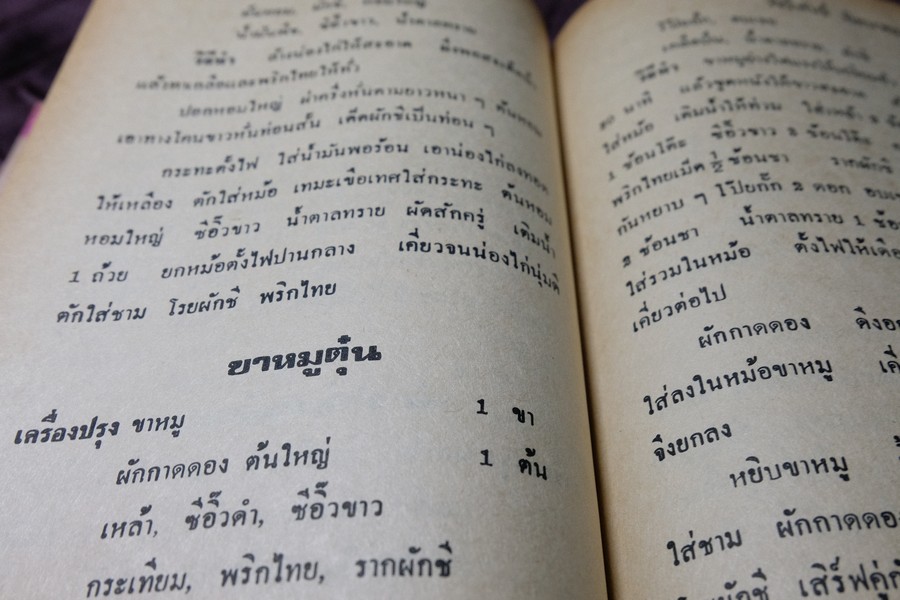 น้ำมันพืช, ซีอิ๊วขาว, น้ำตาลทราย
วิธีทำ ล้างน่องไก่ให้สะอาด
แล้วทาเกลือและพริกไทยให้ทั่ว
ปอกหอมใหญ่ ผ่าครึ่งหั่นตามยาวหนา ๆ ต้นหอม
เอาทางโคนขาวหั่นท่อนสั้น เด็ดผักชีเป็นท่อน ๆ
กระทะตั้งไฟ ใส่น้ำมันพอร้อน เอาน่องไก่ลงทอด
ให้เหลือง ตักใส่หม้อ เทมะเขือเทศใส่กระทะ ต้นหอม
หอมใหญ่ ซีอิ๊วขาว น้ำตาลทราย ผัดสักครู่ เติมน้ำ
1 ถ้วย ยกหม้อตั้งไฟปานกลาง เคี่ยวจนน่องไก่นุ่มดี
ตักใส่ชาม โรยผักชี พริกไทย
ขาหมูตุ๋น
เครื่องปรุง ขาหมู 1 ขา
ผักกาดดอง ต้นใหญ่ 1 ต้น
เหล้า, ซีอิ๊วดำ, ซีอิ๊วขาว
กระเทียม, พริกไทย, รากผักชี
วิธีทำ
นาที แล้วขูดหนังให้ขาวสะอาด
ใส่หม้อ เติมน้ำให้ท่วม ใส่เหล้า
1 ช้อนโต๊ะ ซีอิ๊วขาว 2 ช้อนโต๊ะ
พริกไทยเม็ด ½ ช้อนชา รากผักชี
กันหยาบ ๆ โป๊ยกั๊ก 2 ดอก อบเช
2 ช้อนชา น้ำตาลทราย 1 ช้อ
ใส่รวมในหม้อ ตั้งไฟให้เดือ
เคี่ยวต่อไป
ผักกาดดอง ดึงออ
ใส่ลงในหม้อขาหมู เคี่
จึงยกลง
หยิบขาหมู
ใส่ชาม ผักกาดดอง
เสิร์ฟคู่กั